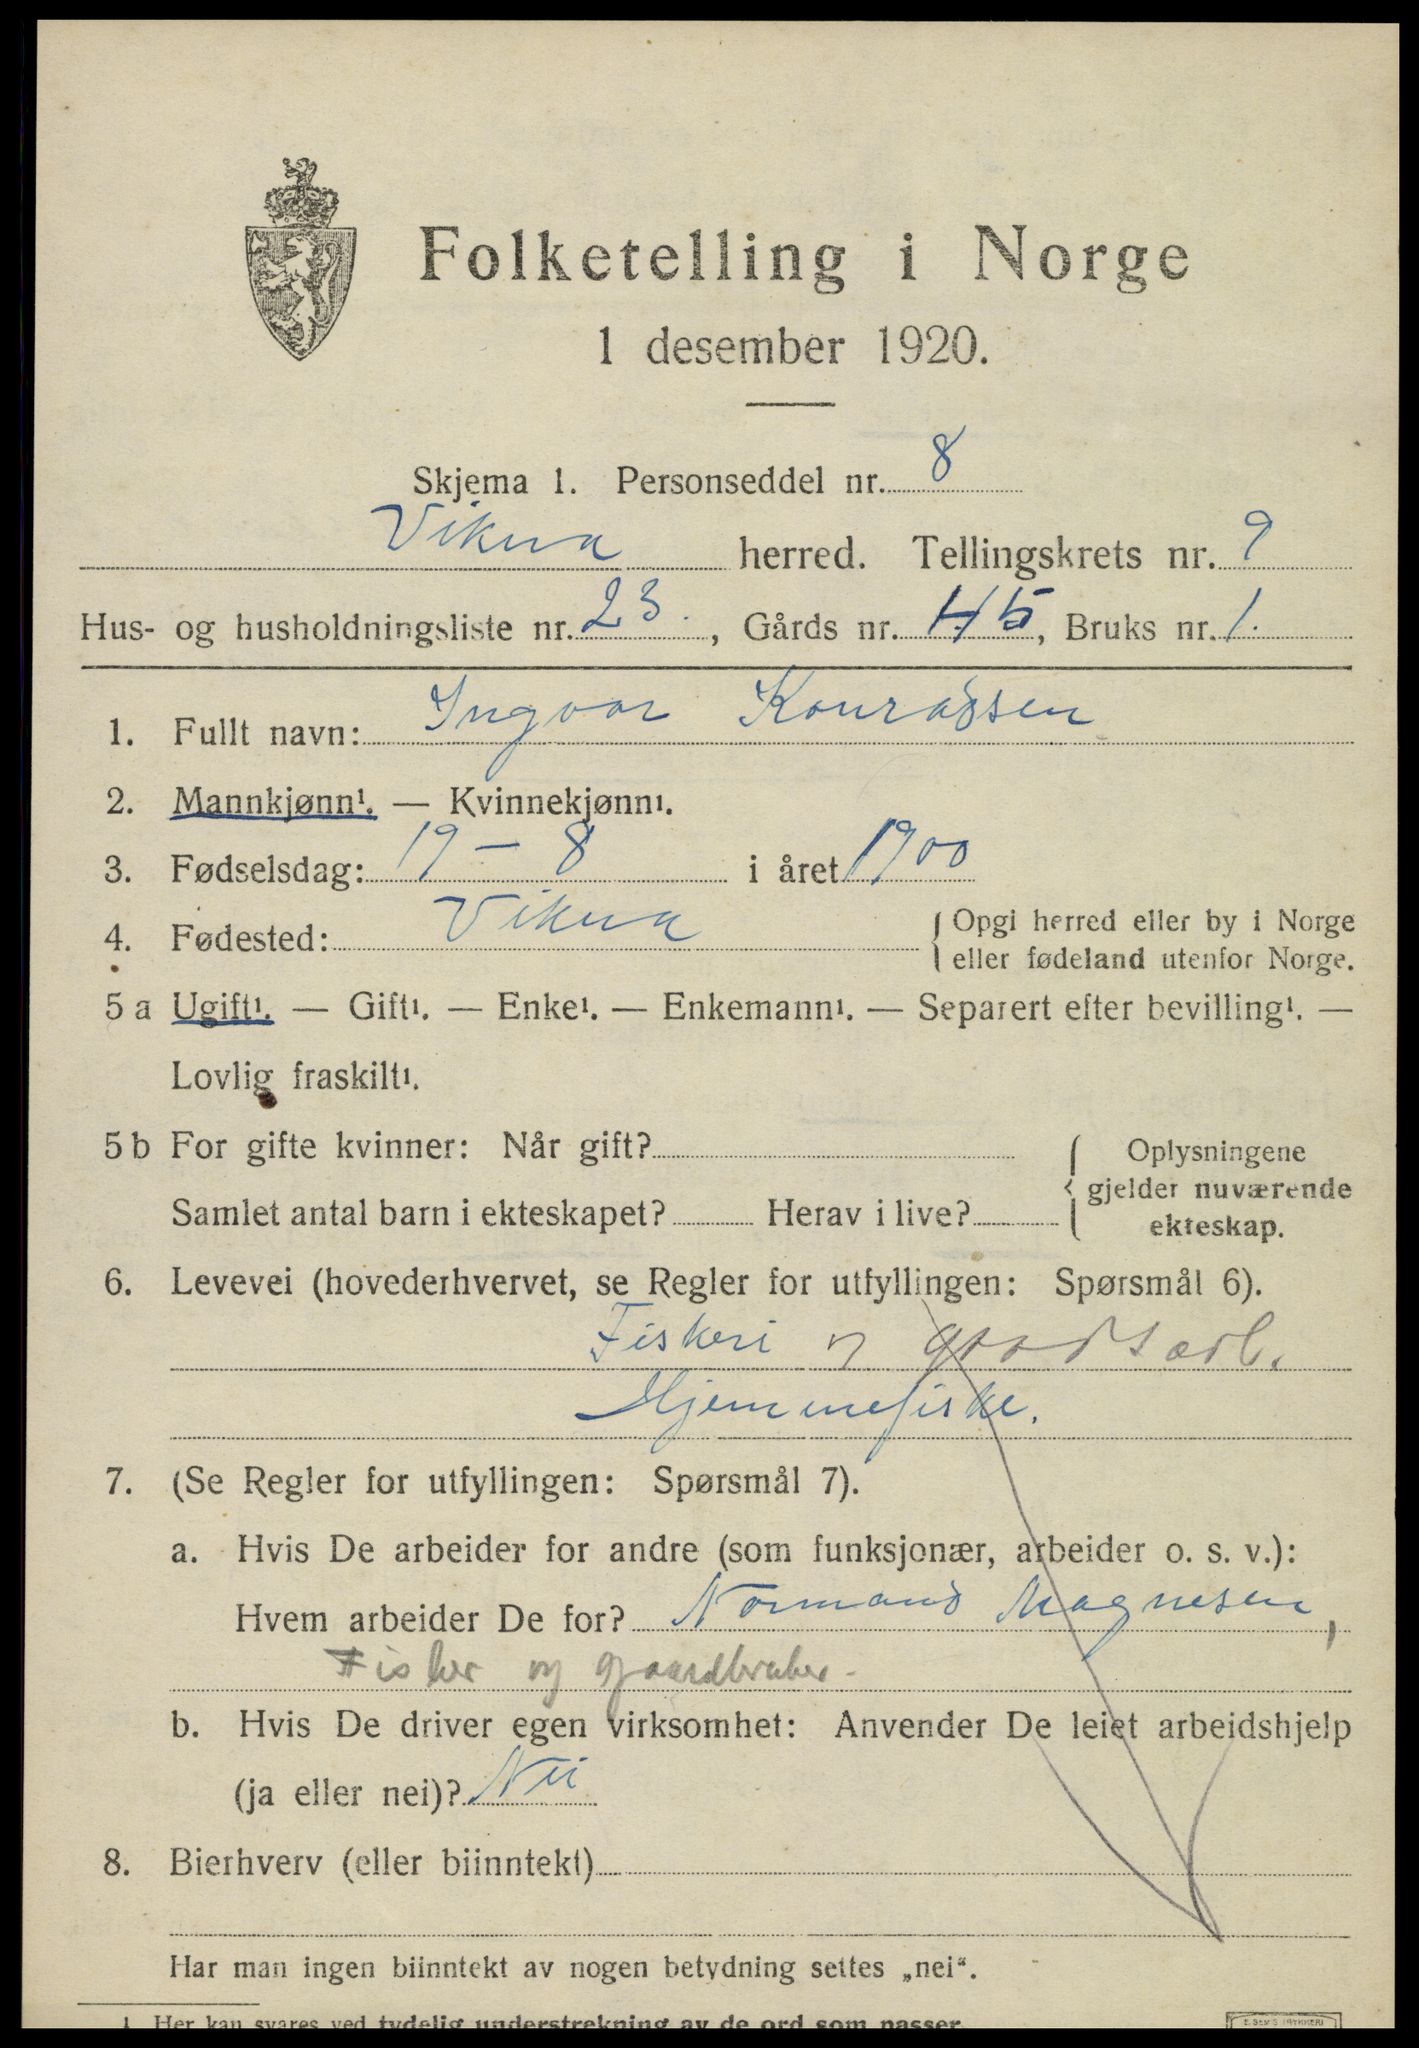 Folketelling i Norge
1 desember 1920.
Skjema 1. Personseddel nr. 8
Vikna herred. Tellingskrets nr. 9
Hus- og husholdningsliste nr. 23. , Gårds nr. 45, Bruks nr. 1.
1. Fullt navn: Ingvar Konradsen
2. Mannkjønn¹. — Kvinnekjønn¹.
3. Fødselsdag: 19 – 8 i året 1900
4. Fødested: Vikna { Opgi herred eller by i Norge
eller fødeland utenfor Norge.
5 a Ugift¹. — Gift¹. — Enke¹. — Enkemann¹. — Separert efter bevilling¹. —
Lovlig fraskilt¹.
5 b For gifte kvinner: Når gift? { Oplysningene
gjelder nuværende
Samlet antal barn i ekteskapet? Herav i live?
ekteskap.
6. Levevei (hovederhvervet, se Regler for utfyllingen: Spørsmål 6).
Fiskeri og gaardsarb.
Hjemmefiske.
7. (Se Regler for utfyllingen: Spørsmål 7).
a. Hvis De arbeider for andre (som funksjonær, arbeider o. s. v.):
Hvem arbeider De for? Normand Magnesen,
Fisker og gaardbruker.
b. Hvis De driver egen virksomhet: Anvender De leiet arbeidshjelp
(ja eller nei)? Nei
8. Bierhverv (eller biinntekt)
Har man ingen biinntekt av nogen betydning settes „nei“.
1 Her kan svares ved tydelig understrekning av de ord som passer.